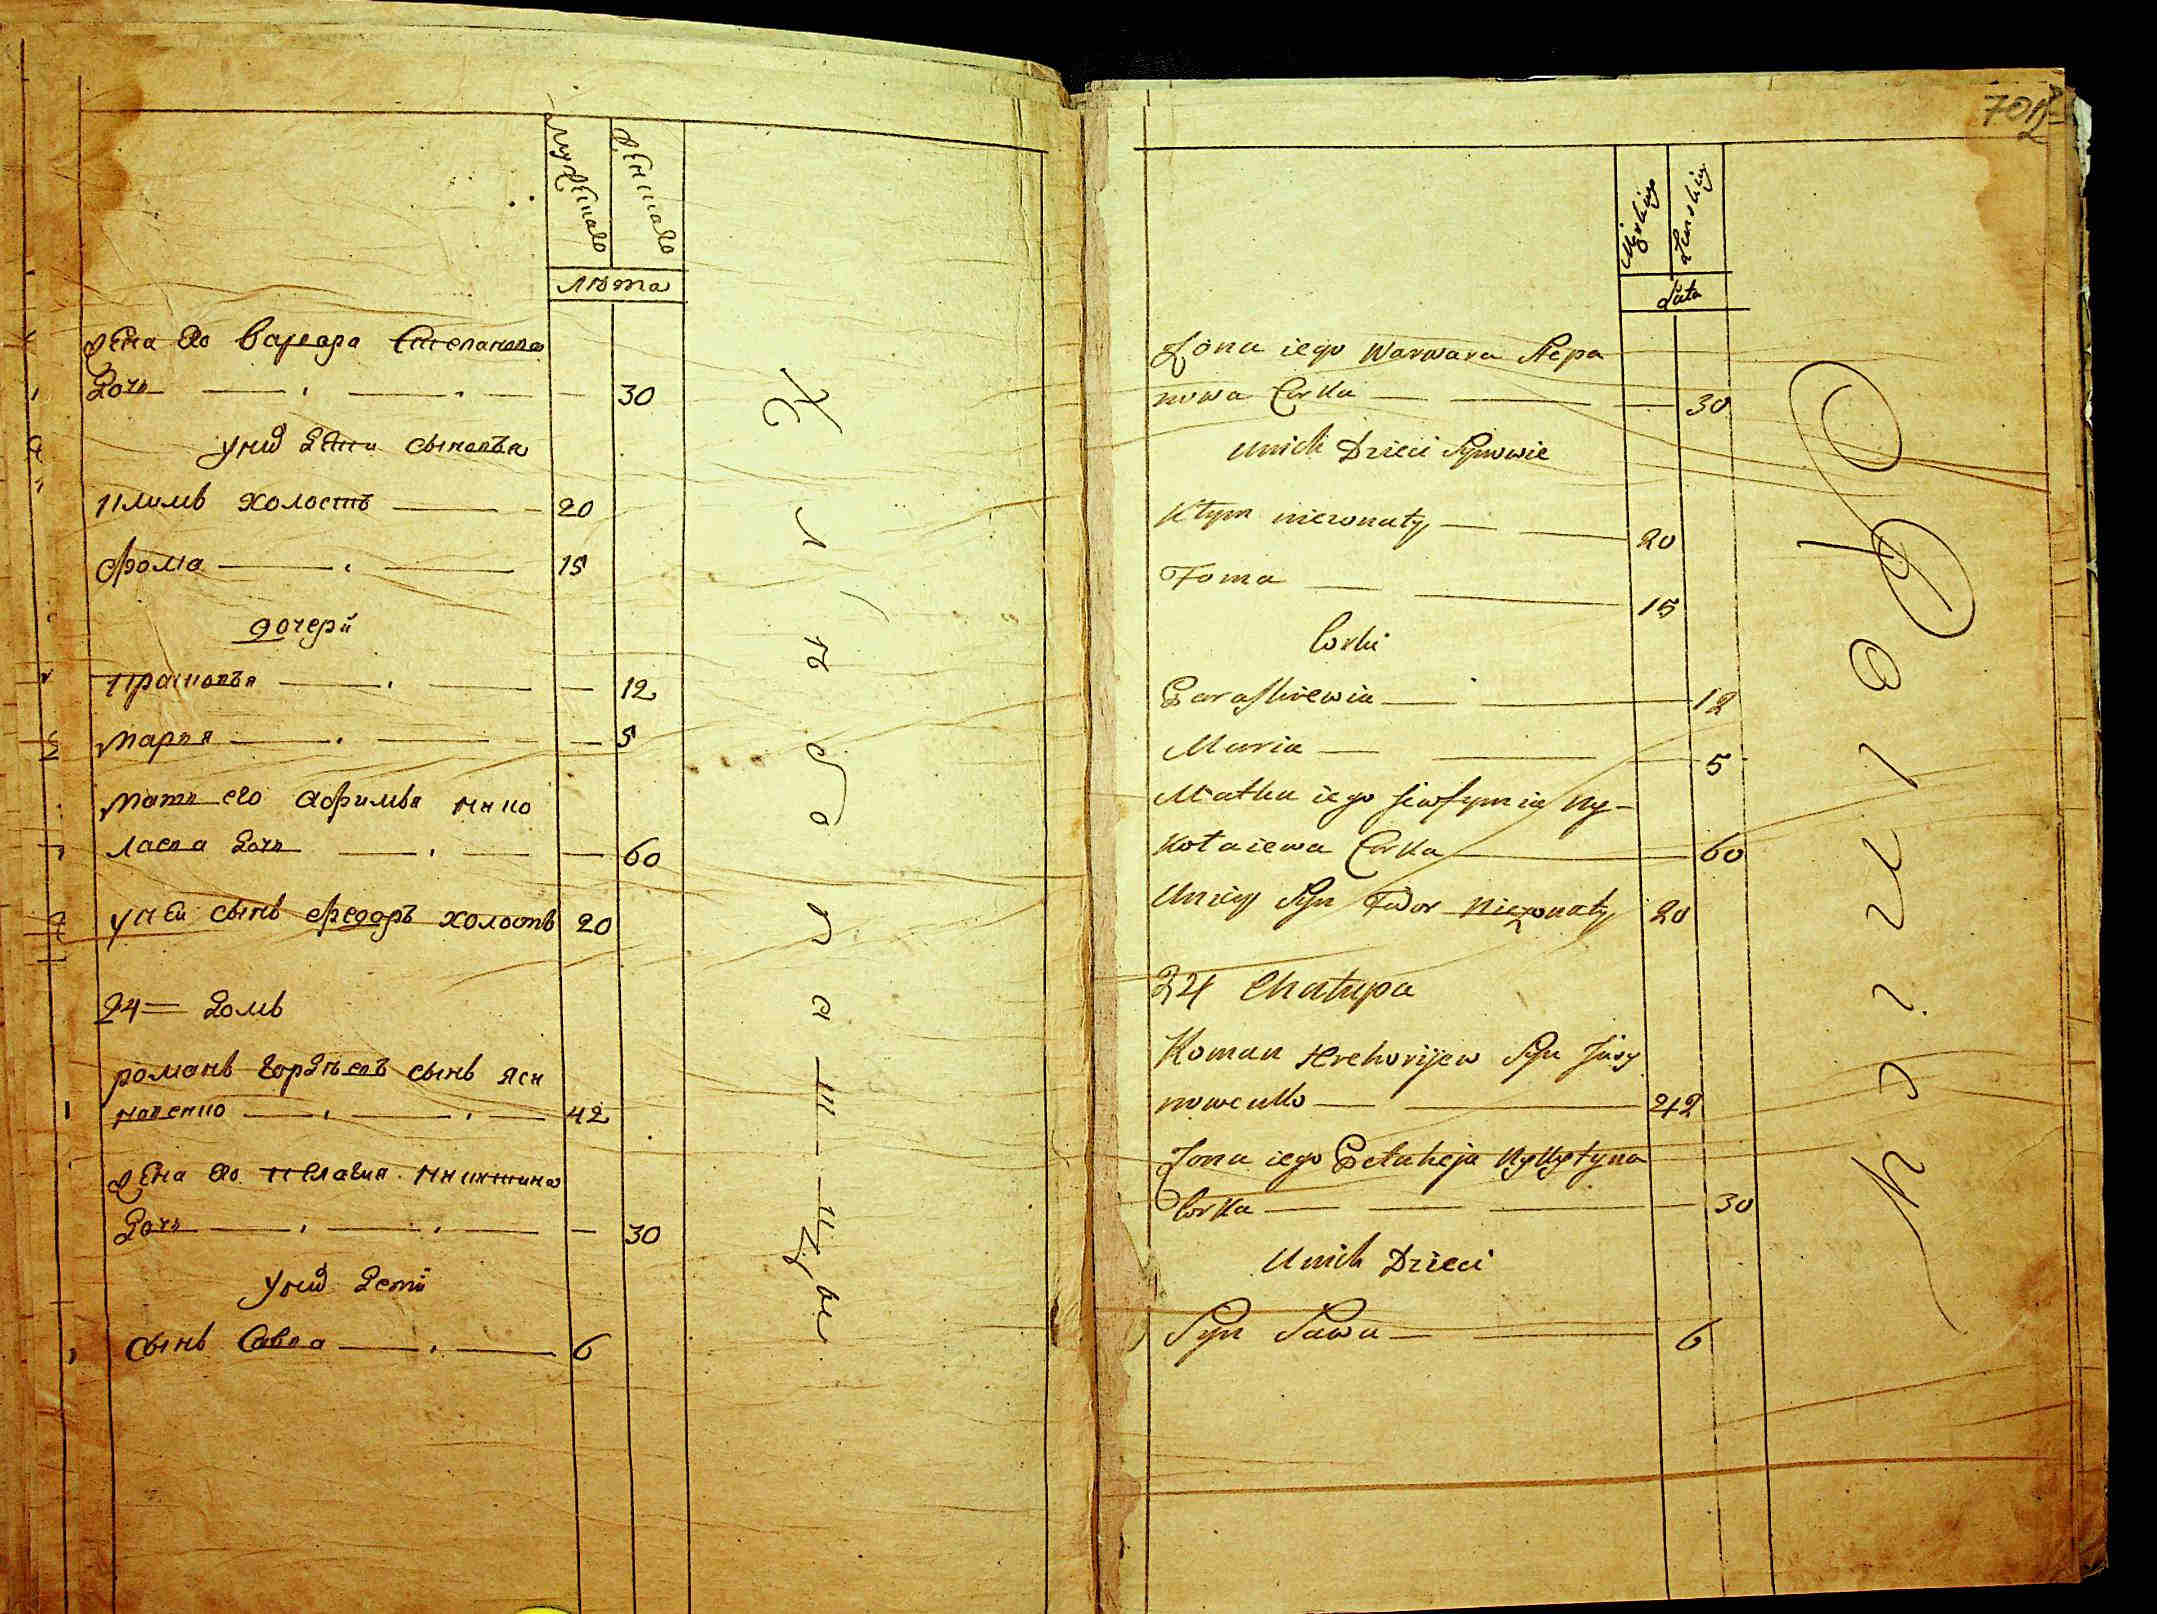 мужеска
женска
лѣта
жена его варвара степанова
дочь 30
у них дети сыновья
климъ холостъ 20
фома 15
дочери
прасковья 12
марья 5
мать его афимья нико
лаева дочь 60
у ней сынъ федоръ холостъ 20
24 домъ
романъ гордѣевъ сынъ яси
новенко 42
жена его пелагия никитина
дочь 30
у них дети
сынъ савва 6
702
Męskiey
Zenskiey
Lata
Zona iego Warwara Stepa
nowa Corka 30
Unich Dzieci Synowie
Kłym niezonaty 20
Foma 15
Corki
Paraskiewia 12
Maria 5
Matka iego Jewfymia Ny-
kołaiewa Corka 60
Uniey Syn Fedor Niezonaty 20
24 Chałupa
Roman Hrehorijew Syn Jasy
nowenko 42
Zona iego Pełaheja Nykytyna
Corka 30
Unich Dzieci
Syn Sawa 6